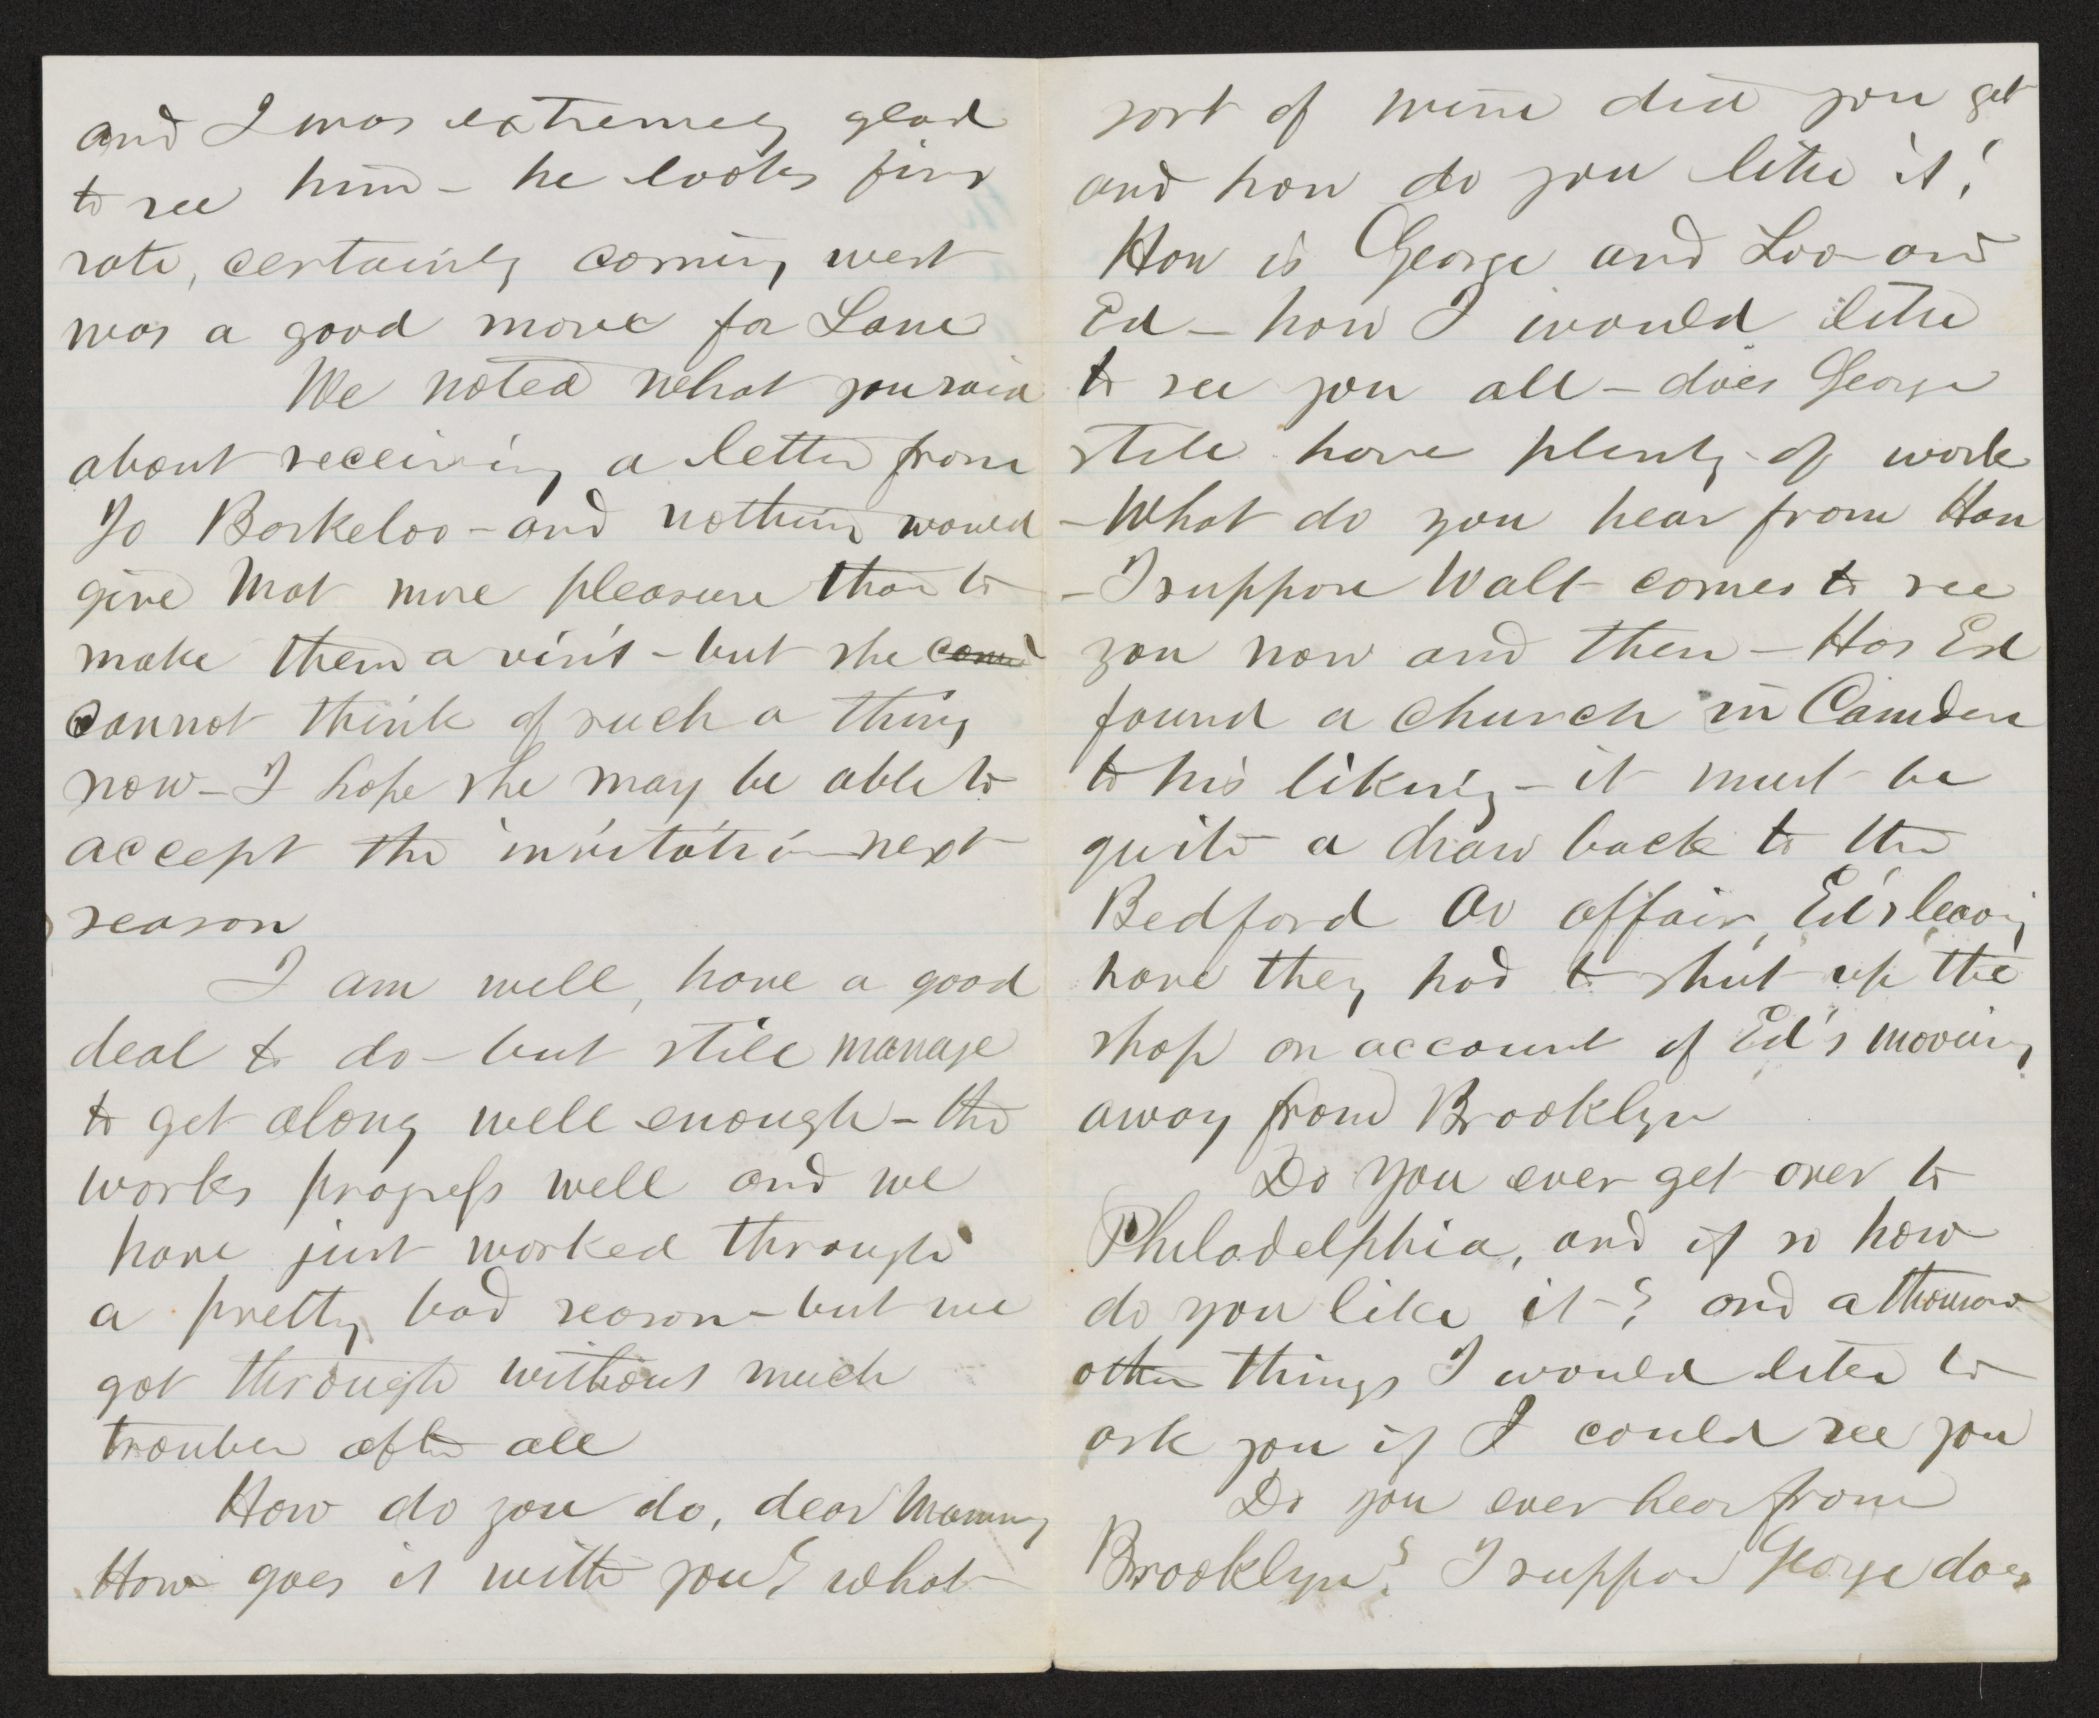 and I was extremely glad
to see him – he looks first
rate, certainly coming west
was a good move for Lane
We noted what you said
about receiving a letter from
Jo Barkeloo – and nothing would
give Mat more pleasure than to
make them a visit – but she
cannot think of such a thing
now – I hope she may be able to
accept the invitation next
season
I am well, have a good
deal to do – but still manage
to get along well enough – the
works progress well and we
have just worked through
a pretty bad season – but we
got through without much
trouble after all
How do you do, dear Mammy
How goes it with you? what
sort of wine did you get
and how do you like it?
How is George and Loo and
Ed – how I would like
to see you all – does George
still have plenty of work
– What do you hear from Han
– I suppose Walt comes to see
you now and then – Has Ed
found a church in Camden
to his liking – it must be
quite a draw back to the
Bedford Av affair, Ed's leaving
have they had to shut up the
shop on account of Ed's moving
away from Brooklyn
Do you ever get over to
Philadelphia, and if so how
do you like it – ? and a thousand
other things I would like to
ask you if I could see you
Do you ever hear from
Brooklyn? I suppose George does